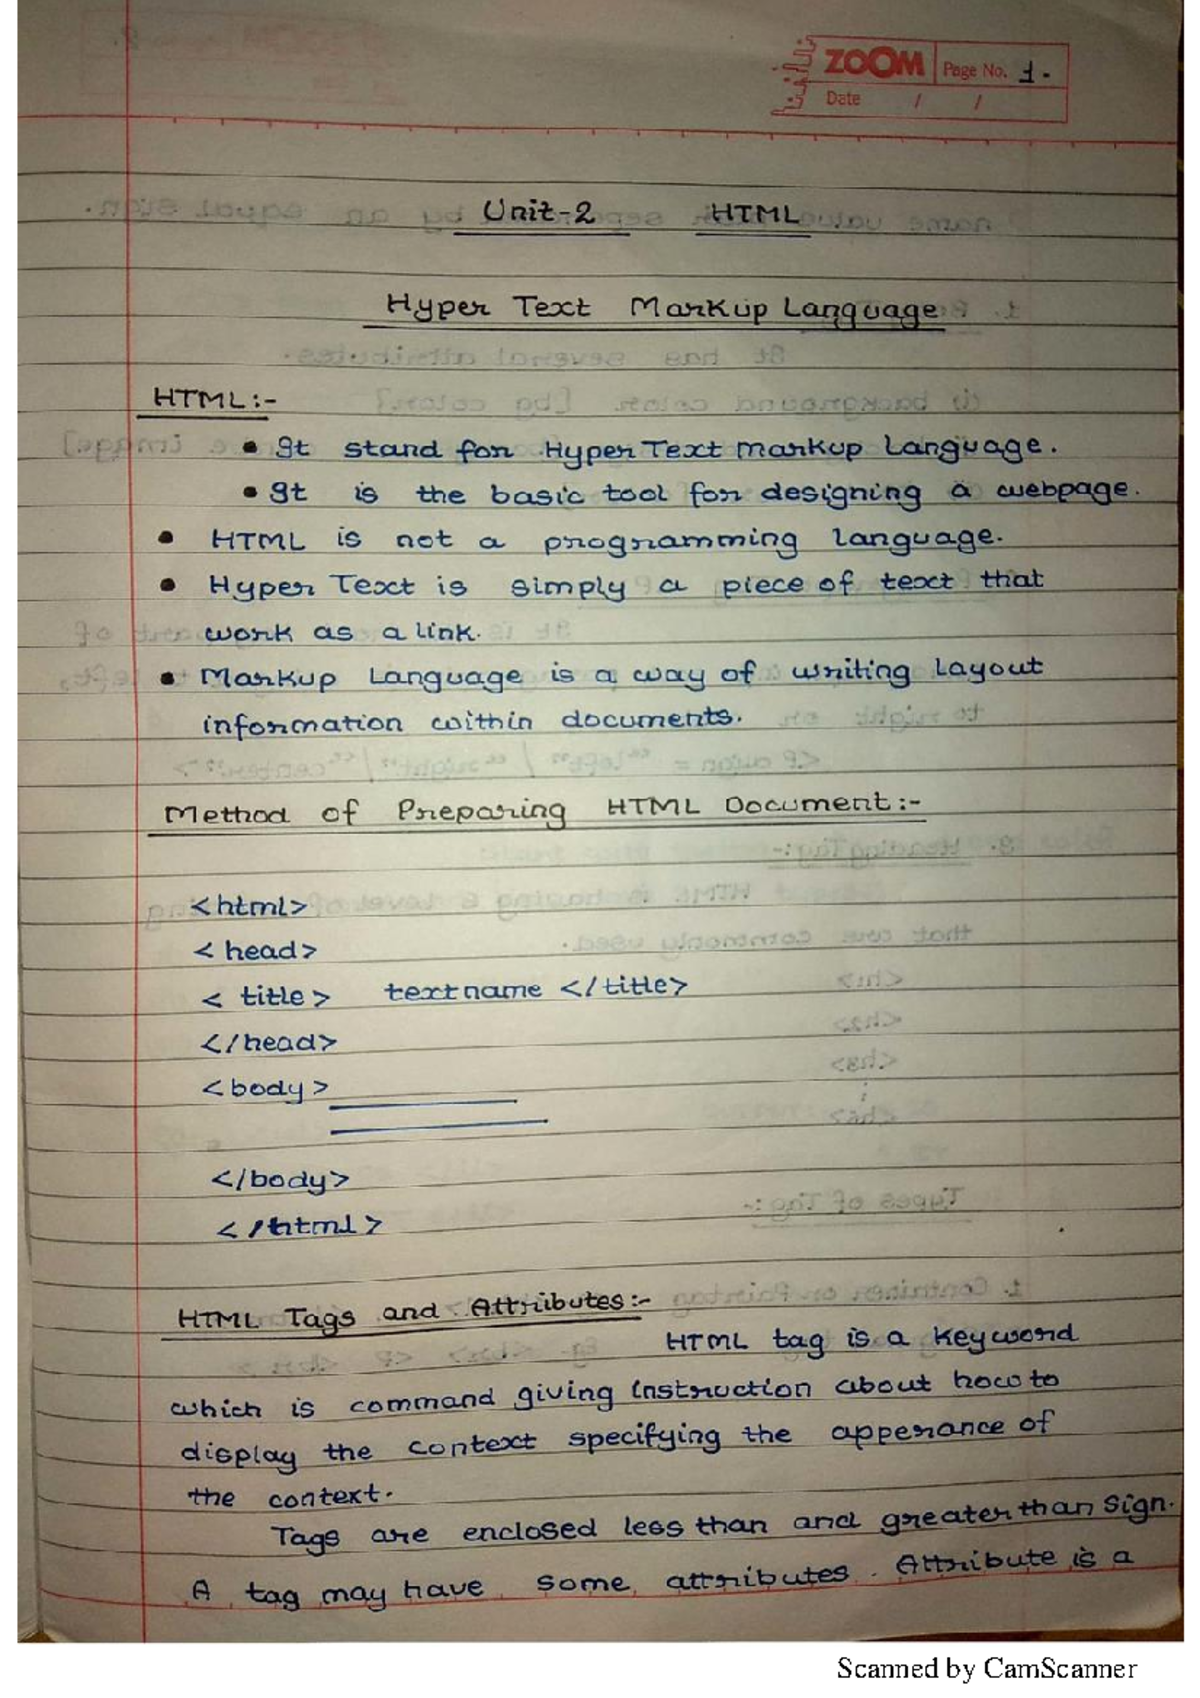 ZOOM Page No. 1.
Date / /
Unit-2 HTML
Hyper Text Markup Language
HTML:-
• It stand for Hyper Text markup Language.
• It is the basic tool for designing a webpage.
• HTML is not a programming language.
• Hyper Text is simply a piece of text that
work as a link.
• Markup Language is a way of writing Layout
information within documents.
Method of Preparing HTML Document:-
<html>
<head>
<title> textname </title>
</head>
<body>
</body>
</html>
HTML Tags and Attributes:-
HTML tag is a keyword
which is command giving instruction about how to
display the context specifying the apperance of
the context.
Tags are enclosed less than and greater than Sign.
A tag may have some attributes. Attribute is a
Scanned by CamScanner